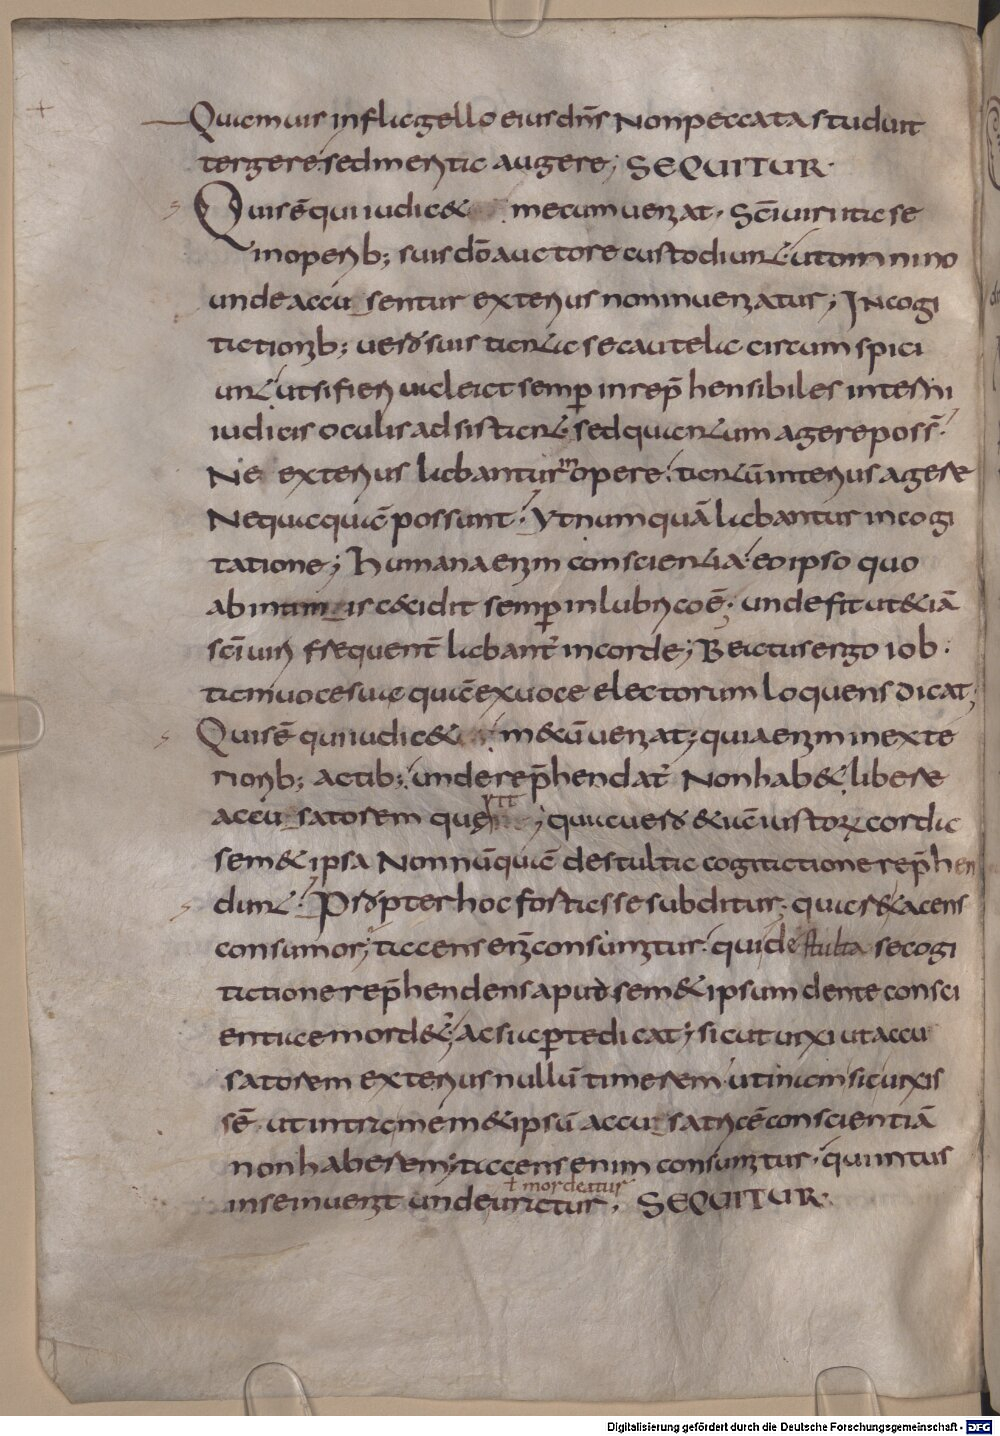 Quamuis in flagello eius dn̄s non peccata studuit
tergere sed merita augere; SEQUITUR·
Quis ē qui iudic& mecum ueniat· sc̄i uiri ita se
in operib; suis dō auctore custodiunt ut omnino
unde accusentur exterius non inueniatur; In cogi
tationib; uero suis tanta se cautela circumspici
unt ut si fieri ualeat semp inrep̄hensibiles interni
iudicis oculis adsistant· sed quantum agere poss̄·
Ne exterius labantur in opere· tantū interius agere
Nequaquā possunt· Ut numquā labantur in cogi
tatione; humana enim conscientia· eo ipso quo
ab intimis recidit semp in lubrico ē· unde fit ut &iā
sc̄i uiri frequent̄ labant̄ in corde; Beatus ergo iob·
tam uoce sua quā ex uoce electorum loquens dicat;
Quis ē qui iudic& m&ū ueniat; quia enim in exte
riorib; actib; unde rep̄hendat̄ Non hab& libere
accusatorem querit; quia uero &iā iustorū corda
sem& ipsa Nonnūquā de stulta cogitatione rep̄hen
dunt· Propter hoc fortasse subditur· quare tacens
consumor; tacens enī consumitur· qui de stulta se cogi
tatione rep̄hendens apud sem&ipsum dente consci
entiae mord&̄; ac si apte dicat; sicut uixi ut accu
satorem exterius nullū timerem utinam sic uixis
sē ut intra mem&ipsū accusatricē conscientiā
non haberem; tacens enim consumitur· qui intus
ł mordeatur
in se inuenit unde uratur· SEQUITUR·
Digitalisierung gefördert durch die Deutsche Forschungsgemeinschaft - DFG